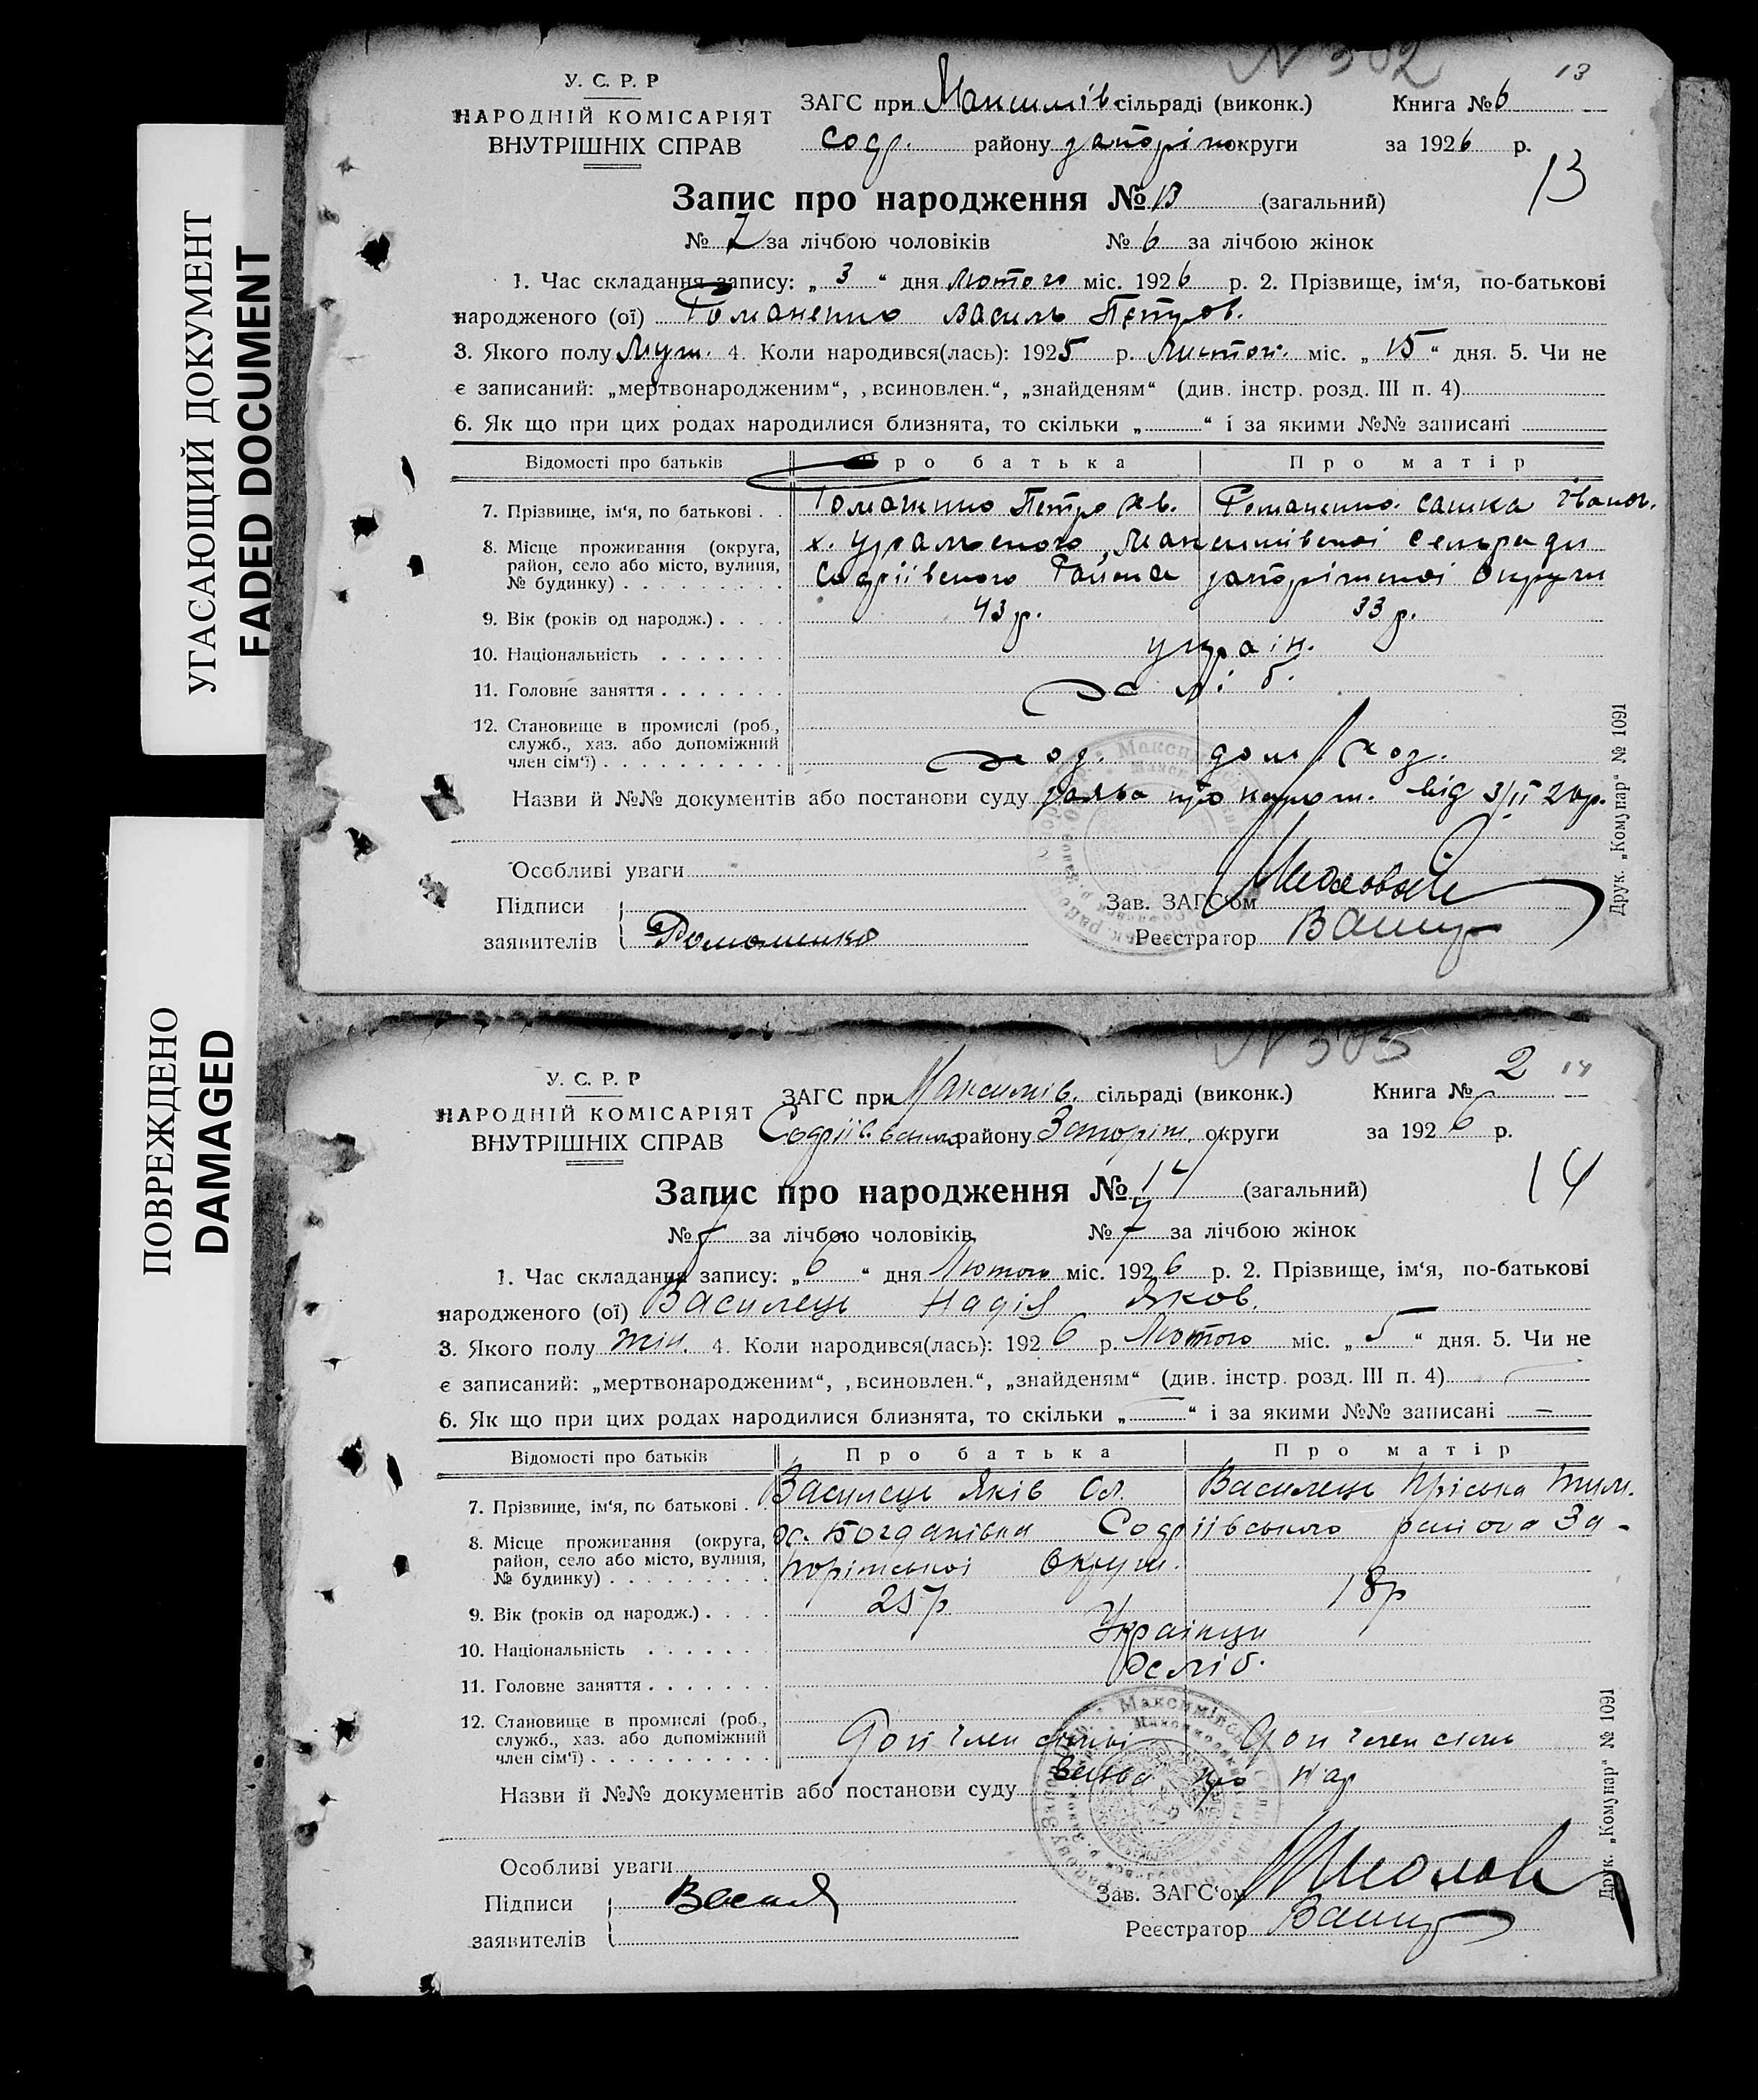 УГАСАЮЩИЙ ДОКУМЕНТ
FADED DOCUMENT
ПОВРЕЖДЕНО
DAMAGED
N 302 13
У. С. Р. Р
НАРОДНІЙ КОМІСАРІЯТ
ВНУТРІШНІХ СПРАВ
ЗАГС при Максимів. сільраді (виконк.) Книга № 6
Соф. району Запоріж округи за 1926 р.
13
Запис про народження № 13 (загальний)
№ 7 за лічбою чоловіків № 6 за лічбою жінок
1. Час складання запису: „ 3 “ дня Лютого міс. 1926 р. 2. Прізвище, ім‘я, по-батькові
народженого (ої) Романенко Василь Петров.
3. Якого полу Муж. 4. Коли народився(лась): 1925 р. Листоп. міс. „ 15 “ дня. 5. Чи не
є записаний: „мертвонародженим“, ‚всиновлен.“, „знайденям“ (див. інстр. розд. III п. 4)
6. Як що при цих родах народилися близнята, то скільки „ “ і за якими №№ записані
Відомості про батьків Про батька Про матір
7. Прізвище, ім‘я, по батькові . . Романенко Петро Романенко Сашка Іванов.
8. Місце проживання (округа, район, село або місто, вулиця, № будинку) . . . х. Українського, Максимівської сельради
Софіївського Района Запоріжської Округи
9. Вік (років од народж.) . . . . 43 р. 33 р.
10. Національність . . . . . . . україн.
11. Головне заняття . . . . . . . хліб.
12. Становище в промислі (роб., служб., хаз. або допоміжний член сім‘ї) . . . хоз. дом/хоз.
Назви й №№ документів або постанови суду заява про народж. від 3/II 26р.
Особливі уваги
Підписи заявителів Романенко
Зав. ЗАГС‘ом
Реєстратор
Друк. „Комунар“ № 1091
N 305 14
У. С. Р. Р
НАРОДНІЙ КОМІСАРІЯТ
ВНУТРІШНІХ СПРАВ
ЗАГС при Максимів. сільраді (виконк.) Книга № 2
Софіївського району Запоріж. округи за 1926 р.
14
Запис про народження № 14 (загальний)
№ за лічбою чоловіків № 7 за лічбою жінок
1. Час складання запису: „ 6 “ дня Лютого міс. 1926 р. 2. Прізвище, ім‘я, по-батькові
народженого (ої) Василець Надія Яков.
3. Якого полу жін. 4. Коли народився(лась): 1926 р. Лютого міс. „ 5 “ дня. 5. Чи не
є записаний: „мертвонародженим“, ‚всиновлен.“, „знайденям“ (див. інстр. розд. III п. 4)
6. Як що при цих родах народилися близнята, то скільки „ — “ і за якими №№ записані —
Відомості про батьків Про батька Про матір
7. Прізвище, ім‘я, по батькові . Василець Яків Ол. Василець Пріська Тим.
8. Місце проживання (округа, район, село або місто, вулиця, № будинку) . . . х. Богданівка Софіївського района За-
поріжської Округи.
9. Вік (років од народж.) . . . . 25р 18р
10. Національність . . . . . . . Українци
11. Головне заняття . . . . . . . Хліб.
12. Становище в промислі (роб., служб., хаз. або допоміжний член сім‘ї) . . . Доп член сімьі Доп член сімьі
Назви й №№ документів або постанови суду про нар
Особливі уваги
Підписи заявителів
Зав. ЗАГС‘ом
Реєстратор
Друк. „Комунар“ № 1091